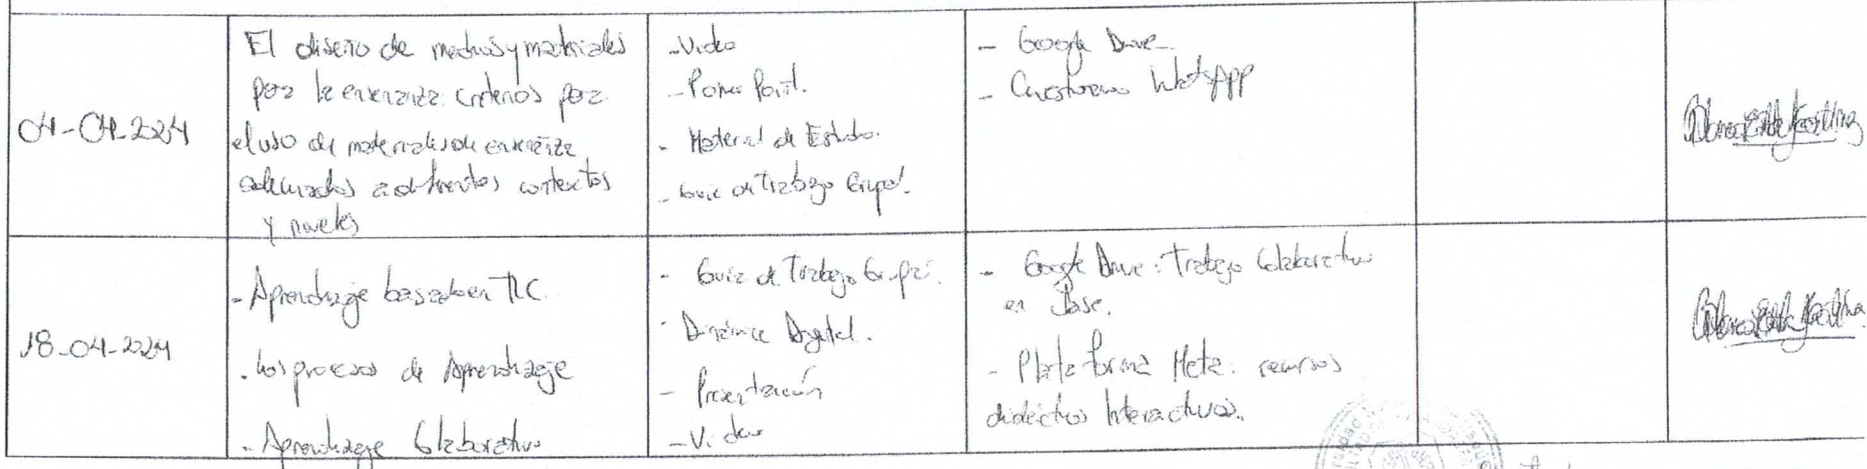 04-04-2024
El diseño de medios y materiales
para la enseñanza: criterios para
el uso de materiales de enseñanza
adecuados a diferentes contextos
y niveles
- Video
- Power Point.
- Material de Estudio.
- Guia de Trabajo Grupal.
- Google Drive
- Cuestionario WhatsApp
18-04-2024
- Aprendizaje basado en TIC
- Los procesos de Aprendizaje
- Aprendizaje Colaborativo
- Guia de Trabajo Grupal.
- Dinámica Digital.
- Presentación
- Video
- Google Drive: Trabajo Colaborativo
en Clase.
- Plataforma Meta: recursos
didácticos Interactivos.